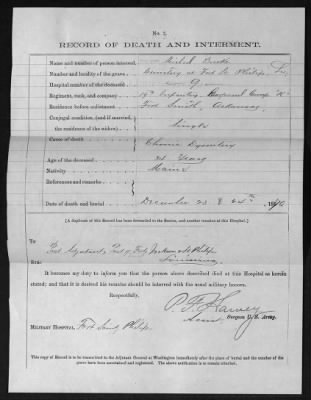 No. 2.
RECORD OF DEATH AND INTERMENT.
Name and number of person interred, Michal Burke
Number and locality of the grave, Cemetery at Fort St. Philip, La
Hospital number of the deceased 9
Regiment, rank, and company 19th Infantry, Corporal Comp "K"
Residence before enlistment Fort Smith, Arkansas
Conjugal condition, (and if married,
the residence of the widow) Single
Cause of death Chronic Dysentery
Age of the deceased 24 Years
Nativity Maine
References and remarks
Date of death and burial December 23 & 24th 1870
(A duplicate of this Record has been forwarded to the Sexton, and another remains at this Hospital.)
To
Post Adjutant, Post of Forts Jackson & St Philip
Louisiana
It becomes my duty to inform you that the person above described died at this Hospital as herein
stated; and that it is desired his remains should be interred with the usual military honors.
Respectfully,
P. F. Harvey
Surgeon U. S. Army.
MILITARY HOSPITAL, Fort Saint Philip
This copy of Record is to be transmitted to the Adjutant General at Washington immediately after the place of burial and the number of the
grave have been ascertained and registered. The others available within